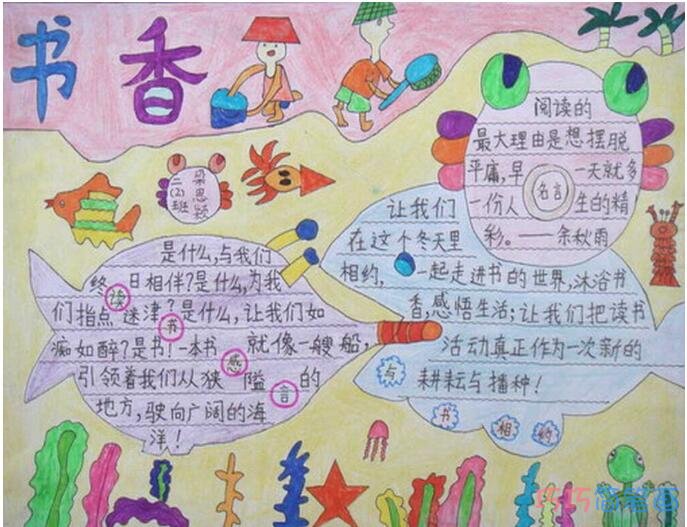 书香
二(2)班
梁思颖
阅读的
最大理由是想摆脱
平庸,早一天就多
一份人生的精
彩。——余秋雨
名言
让我们
在这个冬天里
相约,一起走进书的世界,沐浴书
香,感悟生活;让我们把读书
活动真正作为一次新的
耕耘与播种!
与书相约
是什么,与我们
终日相伴?是什么,为我
们指点迷津?是什么,让我们如
痴如醉?是书!一本书就像一艘船,
引领着我们从狭隘的
地方,驶向广阔的海
洋!
读书感言
巧巧简笔画